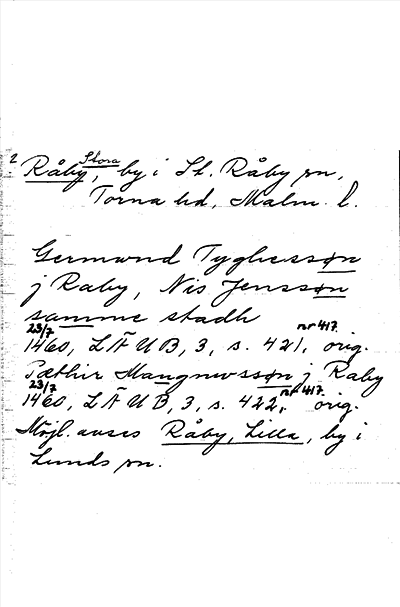 2 Råby, Stora, by i St. Råby sn,
Torna hd, Malm. l.
Germund Tyghesson
j Raby, Nis Jensson
samme stadh
23/7 1460, LÄUB, 3, s. 421, nr 417. orig.
Pæthir Mangnusson j Raby
23/7 1460, LÄUB, 3, s. 422, nr 417. orig.
Möjl. avses Råby, Lilla, by i
Lunds sn.